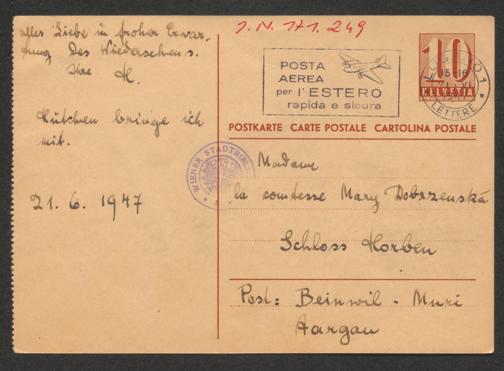 alles Liebe in froher Erwar-
tung des Wiedersehens.
Ihre H.
Hütchen bringe ich
mit.
21. 6. 1947
J.N. 171.249
POSTA
AEREA
per l'ESTERO
rapida e sicura
10
HELVETIA
LETTERE
POSTKARTE CARTE POSTALE CARTOLINA POSTALE
WIENER STADTBIBL
Madame
la comtesse Mary Dobrzenská
Schloss Horben
Post: Beinwil - Muri
Aargau